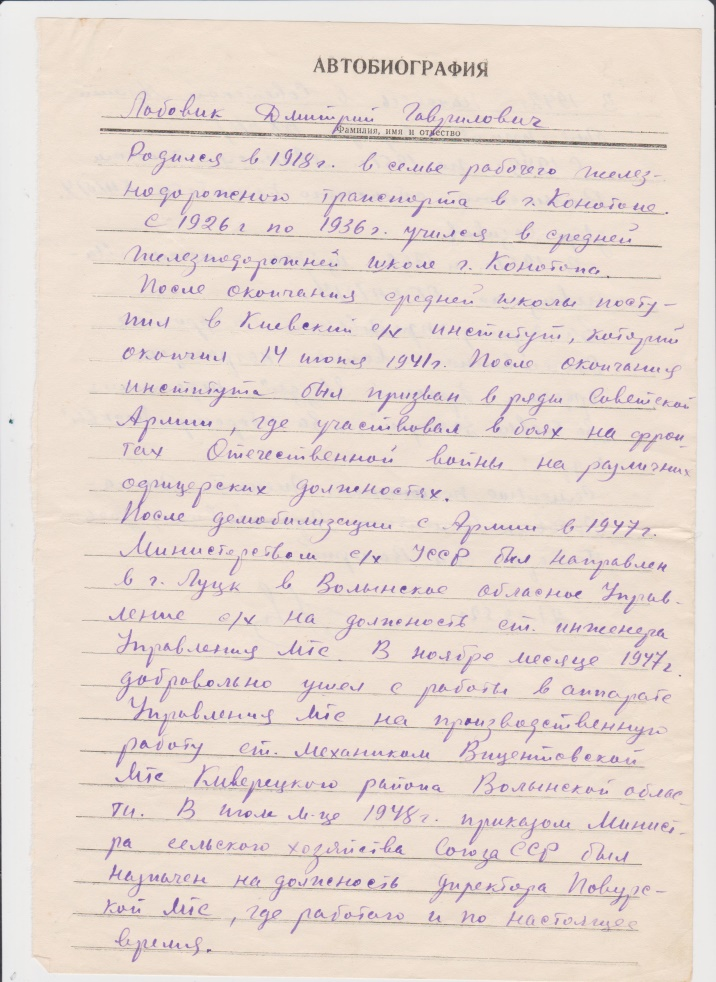 АВТОБИОГРАФИЯ
Лобовик Дмитрий Гаврилович
Фамилия, имя и отчество
Родился в 1918 г. в семье рабочего желез-
нодорожного транспорта в г. Конотопе.
С 1926 г по 1936 г. учился в средней
железнодорожней школе г. Конотопа.
После окончания средней школы посту-
пил в Киевский с/х институт, который
окончил 14 июня 1941 г. После окончания
института был призван в ряды Советской
Армии, где участвовал в боях на фрон-
тах Отечественной войны на различних
офицерских должностях.
После демобилизации с Армии в 1947 г.
Министерством с/х УССР был направлен
в г. Луцк в Волынское обласное Управ-
ление с/х на должность ст. инженера
Управления Мтс. В ноябре месяце 1947 г.
добравольно ушел с работы в аппарате
Управления Мтс на производственную
работу ст. механиком
Мтс Киверецкого района Волынской облас-
ти. В июле м-це 1948 г. приказом Минист-
ра сельского хозяйства Союза ССР был
назначен на должность директора Повурс-
кой Мтс, где работаю и по настоящее
время.